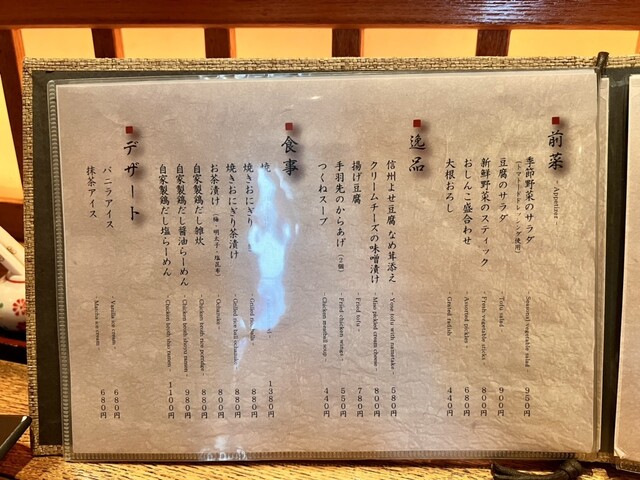 前菜 - Appetizer
季節野菜のサラダ - Seasonal vegetable salad - 950円
(トマトドレッシング使用)
豆腐のサラダ - Tofu salad - 900円
新鮮野菜のスティック - Fresh vegetable sticks - 800円
おしんこ盛合わせ - Assorted pickles - 680円
大根おろし - Grated radish - 440円
逸品
信州よせ豆腐 なめ茸添え - Yose tofu with nametake - 580円
クリームチーズの味噌漬け - Miso pickled cream cheese - 800円
揚げ豆腐 - Fried tofu - 780円
手羽先のからあげ (2個) - Fried chicken wings - 550円
つくねスープ - Chicken meatball soup - 440円
食事
焼 1380円
焼きおにぎり - Grilled rice balls - 880円
焼きおにぎり茶漬け - Grilled rice ball ochazuke - 880円
お茶漬け (梅・明太子・塩昆布) - Ochazuke - 800円
自家製鶏だし雑炊 - Chicken broth rice porridge - 880円
自家製鶏だし醤油らーめん - Chicken broth shoyu ramen - 980円
自家製鶏だし塩らーめん - Chicken broth shio ramen - 1100円
デザート
バニラアイス - Vanilla ice cream - 680円
抹茶アイス - Matcha ice cream - 680円